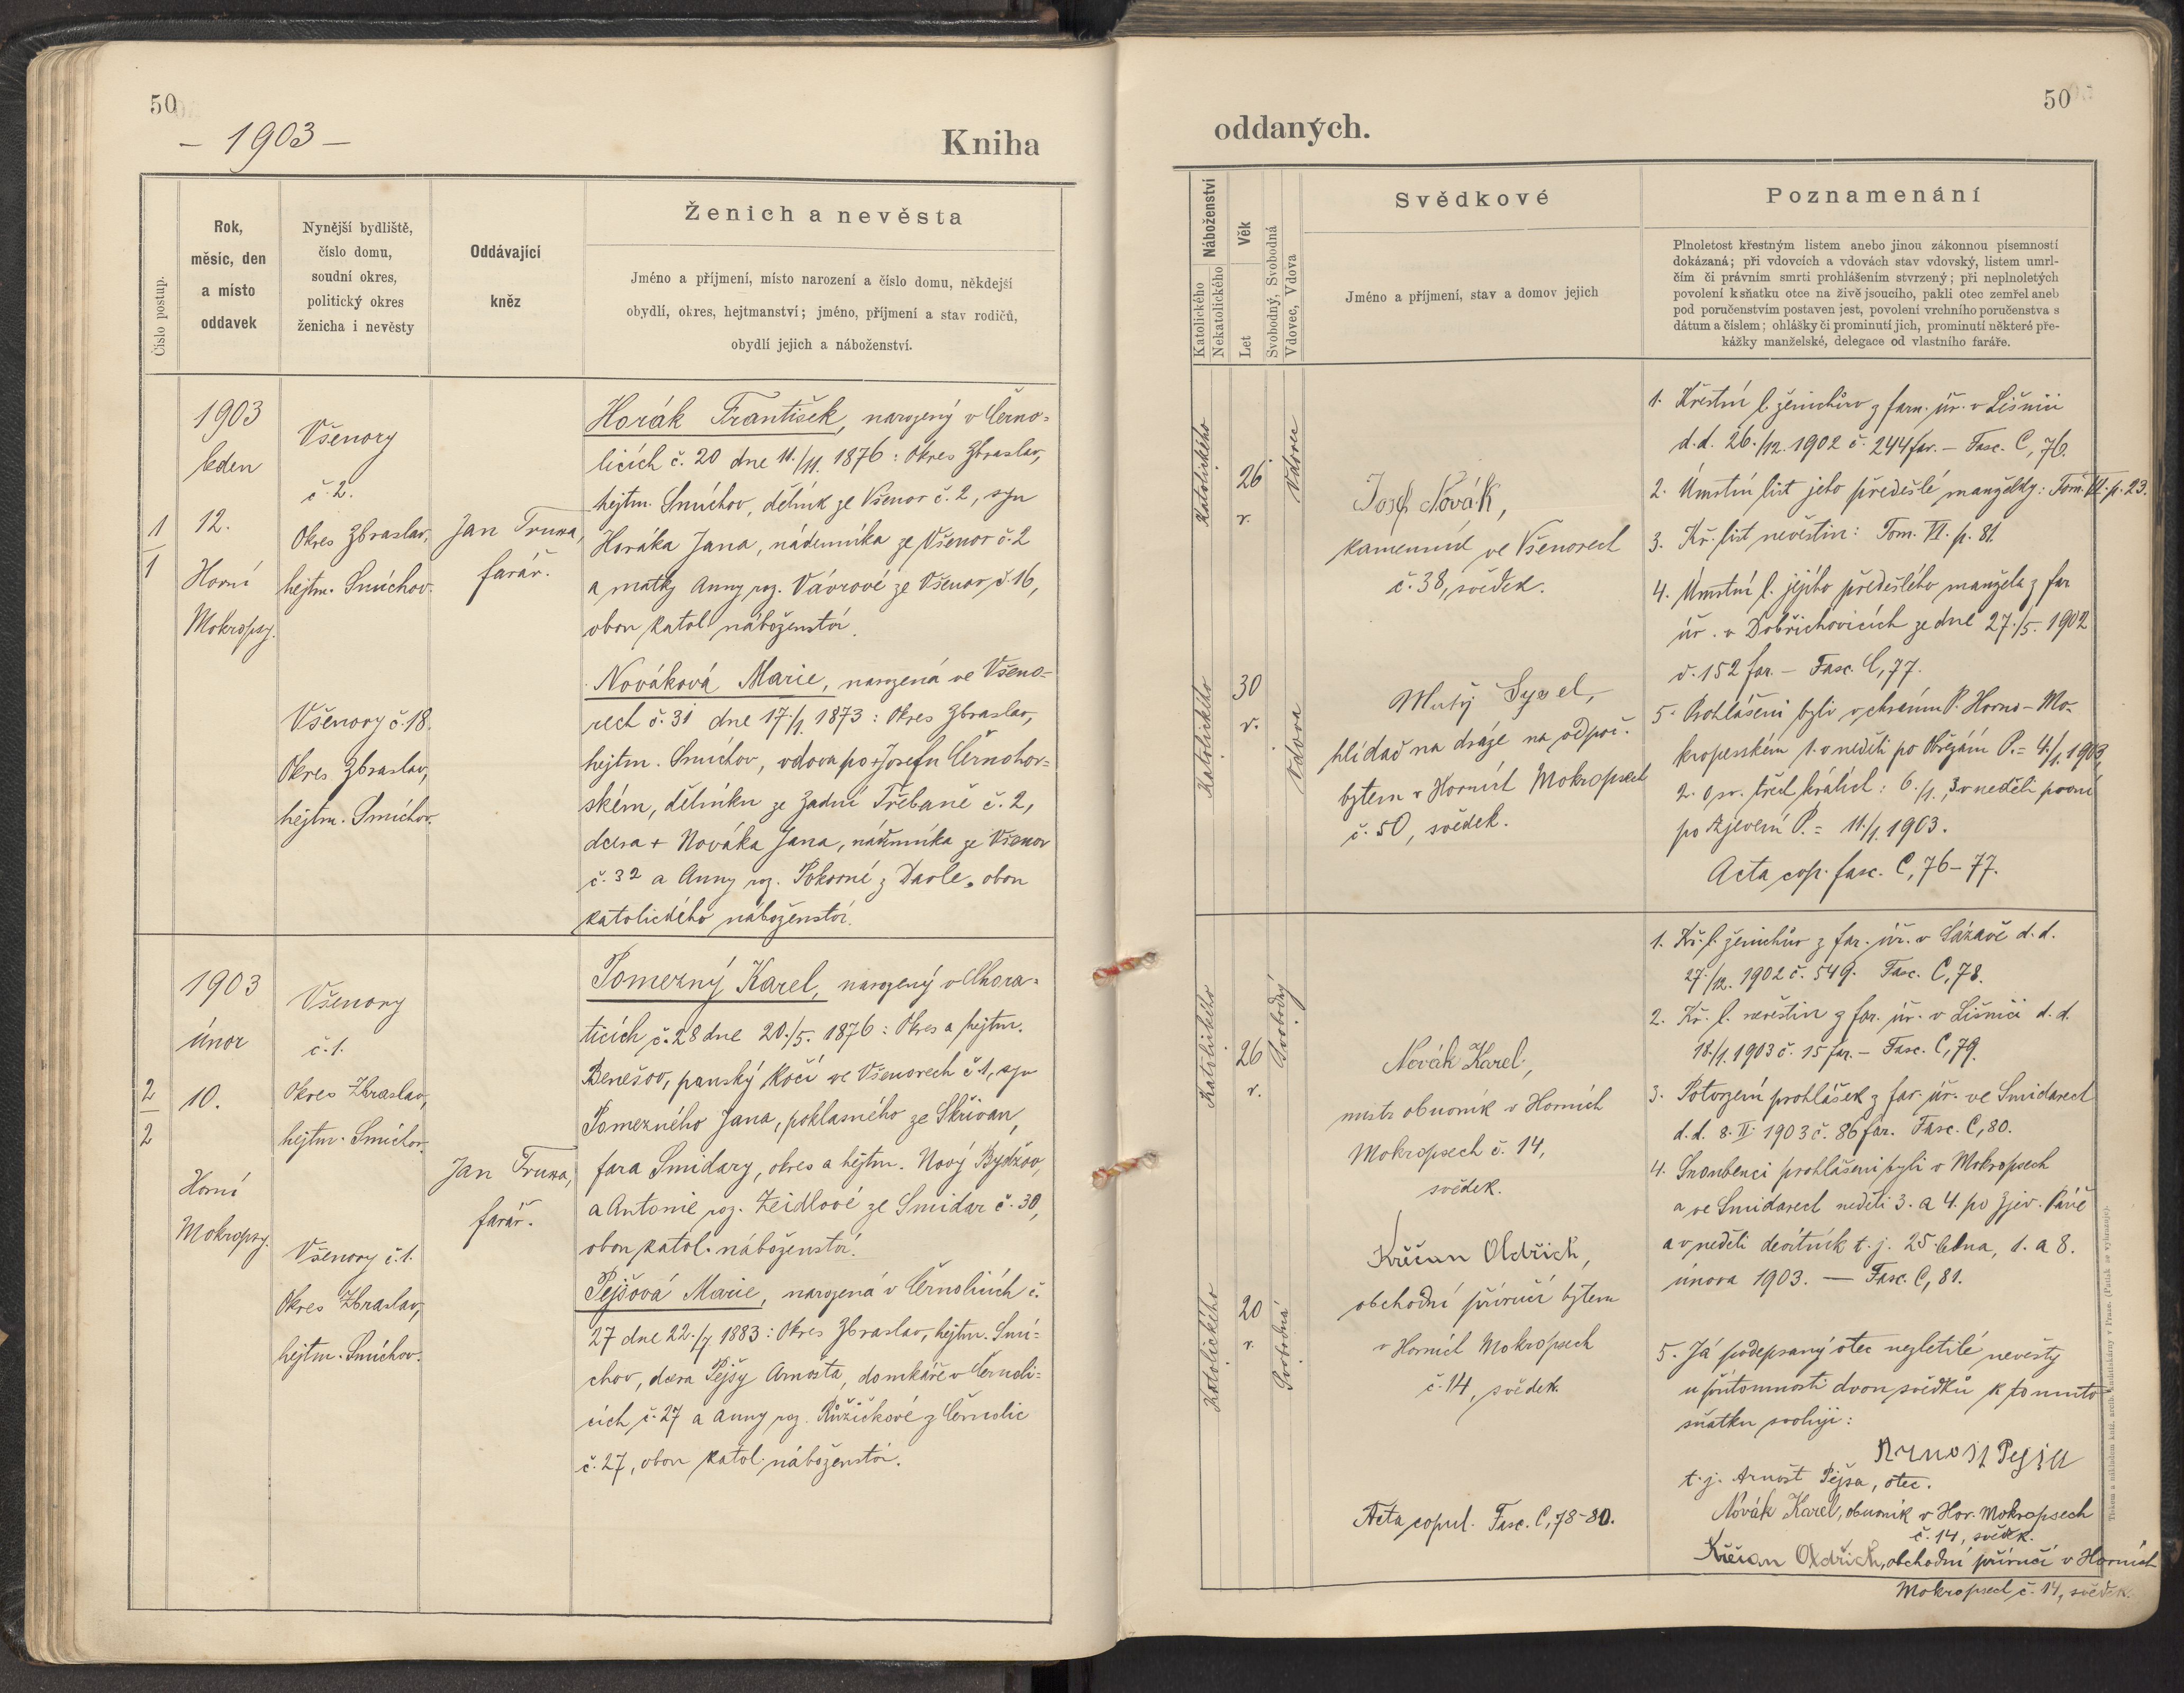 50
- 1903 -
Kniha
Číslo postup.
Rok,
měsíc, den
a místo
oddavek
Nynější bydliště,
číslo domu,
soudní okres,
politický okres
ženicha i nevěsty
Oddávající
kněz
Ženich a nevěsta
Jméno a příjmení, místo narození a číslo domu, někdejší
obydlí, okres, hejtmanství; jméno, příjmení a stav rodičů,
obydlí jejich a náboženství.
1
1
1903
leden
12.
Horní
Mokropsy.
Všenory
č. 2.
Okres Zbraslav,
hejtm. Smíchov.
Všenory č. 18.
Okres Zbraslav,
hejtm. Smíchov.
Jan Truxa,
farář.
Horák František, narozený v Černo-
licích č. 20 dne 11./11. 1876: Okres Zbraslav,
hejtm. Smíchov, dělník ze Všenor č. 2, syn
Horáka Jana, nádenníka ze Všenor č. 2
a matky Anny roz. Vávrové ze Všenor č. 16,
obou katol. náboženství.
Nováková Marie, narozená ve Všeno-
rech č. 31 dne 17./1. 1873: Okres Zbraslav,
hejtm. Smíchov, vdova po + Josefu Černohor-
ském, dělníku ze Zadní Třebaně č. 2,
dcera + Nováka Jana, nádenníka ze Všenor
č. 32 a Anny roz. Pokorné z Davle, obou
katolického náboženství.
2
2
1903
únor
10.
Horní
Mokropsy.
Všenory
č. 1.
Okres Zbraslav,
hejtm. Smíchov.
Všenory č. 1.
Okres Zbraslav,
hejtm. Smíchov.
Jan Truxa,
farář.
Pomezný Karel, narozený v Chora-
ticích č. 28 dne 20./5. 1876: Okres a hejtm.
Benešov, panský kočí ve Všenorech č. 1, syn
Pomezného Jana, poklasného ze Skřivan,
fara Smidary, okres a hejtm. Nový Bydžov,
a Antonie roz. Zeidlové ze Smidar č. 30,
obou katol. náboženství.
Pejšová Marie, narozená v Černolicích č.
27 dne 22./7. 1883: Okres Zbraslav, hejtm. Smí-
chov, dcera Pejšy Arnošta, domkáře v Černoli-
cích č. 27 a Anny roz. Růžičkové z Černolic
č. 27, obou katol. náboženství.
50
oddaných.
Náboženství
Katolického
Nekatolického
Věk
Let
Svobodný, Svobodná
Vdovec, Vdova
Svědkové
Jméno a příjmení, stav a domov jejich
Poznamenání
Plnoletost křestným listem anebo jinou zákonnou písemností
dokázaná; při vdovcích a vdovách stav vdovský, listem umrl-
čím či právním smrti prohlášením stvrzený; při neplnoletých
povolení k sňatku otce na živě jsoucího, pakli otec zemřel aneb
pod poručenstvím postaven jest, povolení vrchního poručenstva s
dátum a číslem; ohlášky či prominutí jich, prominutí některé pře-
kážky manželské, delegace od vlastního faráře.
Katolického
26
r.
Vdovec
Katolického
30
r.
Vdova
Josef Novák,
kamenník ve Všenorech
č. 38, svědek.
hlídač na dráze na odpoč.
bytem v Horních Mokropsech
č. 50, svědek.
1. Křestní l. ženichův z farn. úř. v Líšnici
d. d. 26./12. 1902 č. 244 far. - Fasc. C, 76.
2. Úmrtní list jeho předešlé manželky: Tom. VI. p. 23.
3. Kř. list nevěstin: Tom. VI. p. 81.
4. Úmrtní l. jejího předešlého manžela z far.
úř. v Dobřichovicích ze dne 27./5. 1902
č. 152 far. - Fasc. C, 77.
5. Prohlášeni byli v chrámu P. Horno-Mo-
kropesském 1. v neděli po Obřezání P. = 4./1. 1903,
2. o sv. třech králích: 6./1., 3. v neděli první
po Zjevení P. = 11./1. 1903.
Acta cop. fasc. C, 76-77.
Katolického
26
r.
Svobodný
Katolického
20
r.
Svobodná
Novák Karel,
mistr obuvník v Horních
Mokropsech č. 14,
svědek.
Křičan Oldřich,
obchodní příručí bytem
v Horních Mokropsech
č. 14, svědek.
Acta copul. Fasc. C, 78-80.
1. Kř. l. ženichův z far. úř. v Sázavě d. d.
27./12. 1902 č. 549. Fasc. C, 78.
2. Kř. l. nevěstin z far. úř. v Líšnici d. d.
18./1. 1903 č. 15 far. - Fasc. C, 79.
3. Potvrzení prohlášek z far. úř. ve Smidarech
d. d. 8. II. 1903 č. 86 far. Fasc. C, 80.
4. Snoubenci prohlášeni byli v Mokropsech
a ve Smidarech neděli 3. a 4. po Zjev. Páně
a v neděli devítník t. j. 25. ledna, 1. a 8.
února 1903. — Fasc. C, 81.
5. Já podepsaný otec nezletilé nevěsty
u přítomnosti dvou svědků k tomuto
sňatku svoluji:
Arnošt Pejša
t. j. Arnošt Pejša, otec.
Novák Karel, obuvník v Hor. Mokropsech
č. 14, svědek.
Křičan Oldřich, obchodní příručí v Horních
Mokropsech č. 14, svědek.